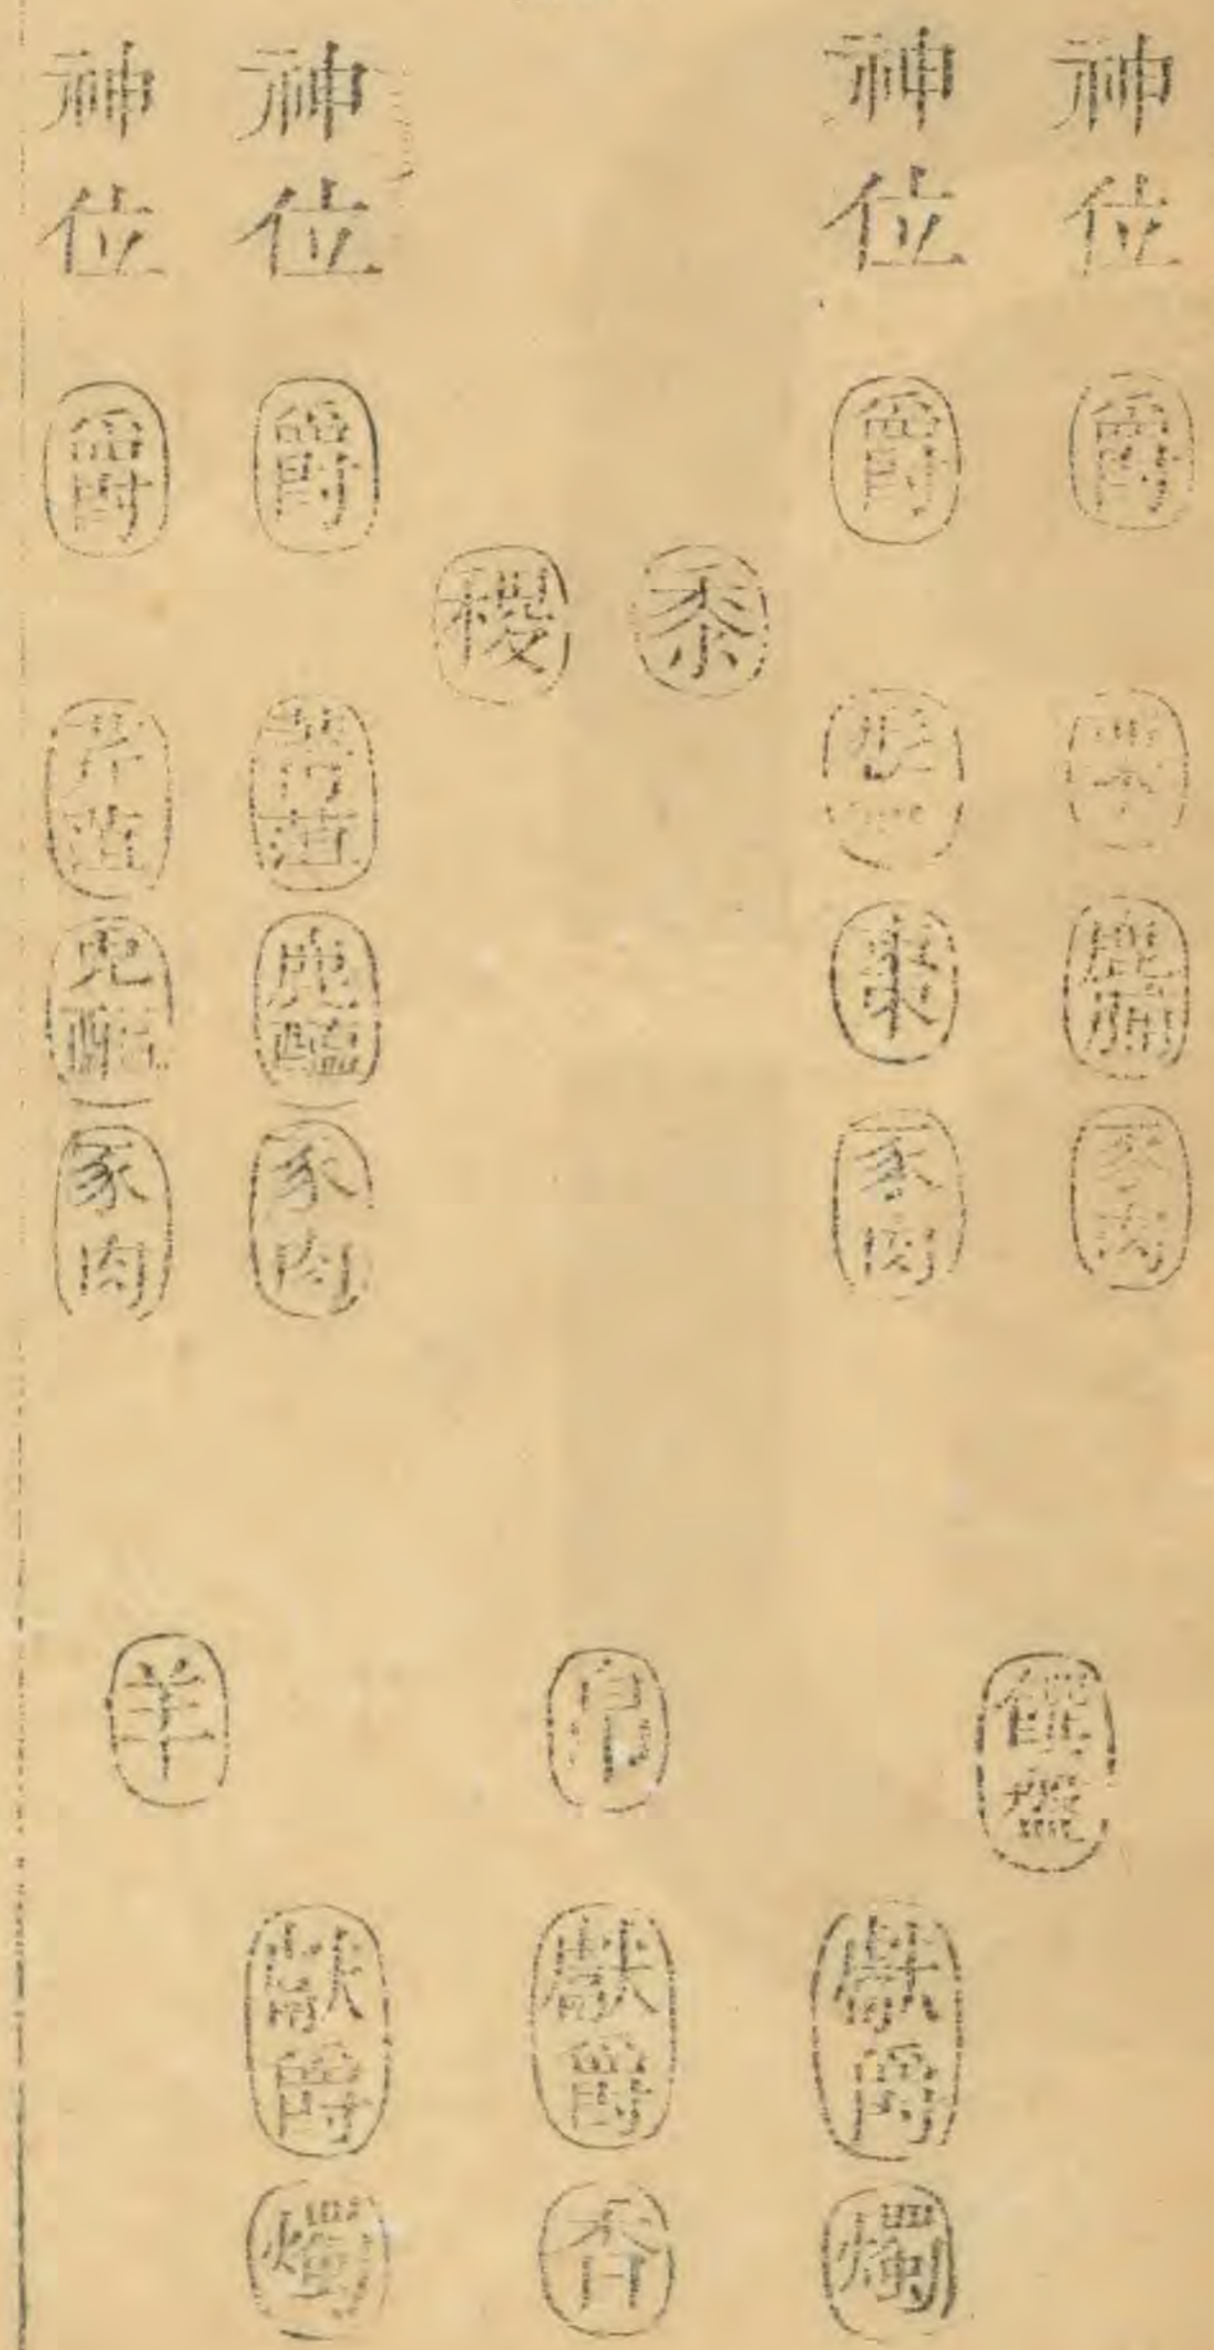 神位
爵
鹿脯
豕肉
神位
爵
棗
豕肉
黍
稷
神位
爵
菁菹
鹿醢
豕肉
神位
爵
芹菹
兔醢
豕肉
饌盤
帛
羊
獻爵
燭
獻爵
香
獻爵
燭